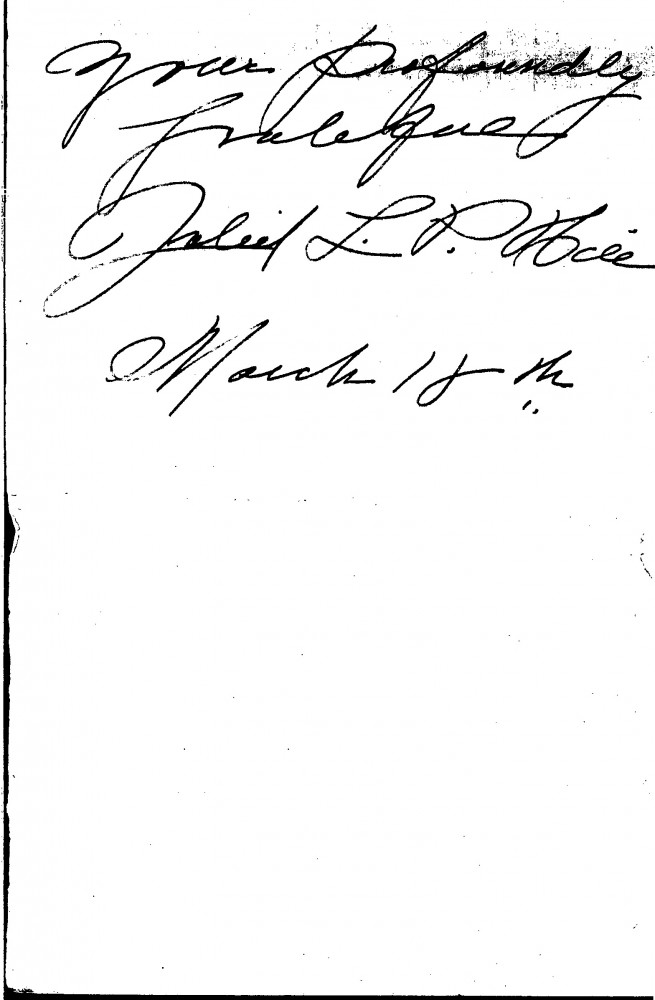 Your profoundly
grateful
Juliet L. P.
March 18th